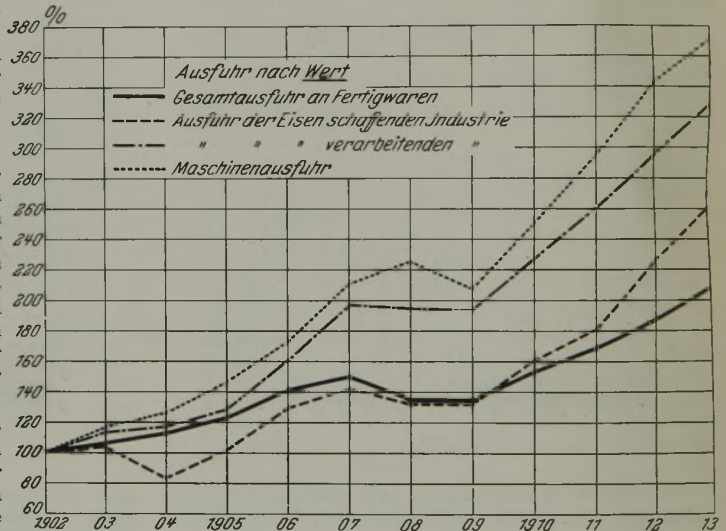 %
380
360
340
320
300
280
260
240
220
200
180
160
140
120
100
80
60
Ausfuhr nach Wert
Gesamtausfuhr an Fertigwaren
Ausfuhr der Eisen schaffenden Industrie
" " " verarbeitenden "
Maschinenausfuhr
1902 03 04 1905 06 07 08 09 1910 11 12 13